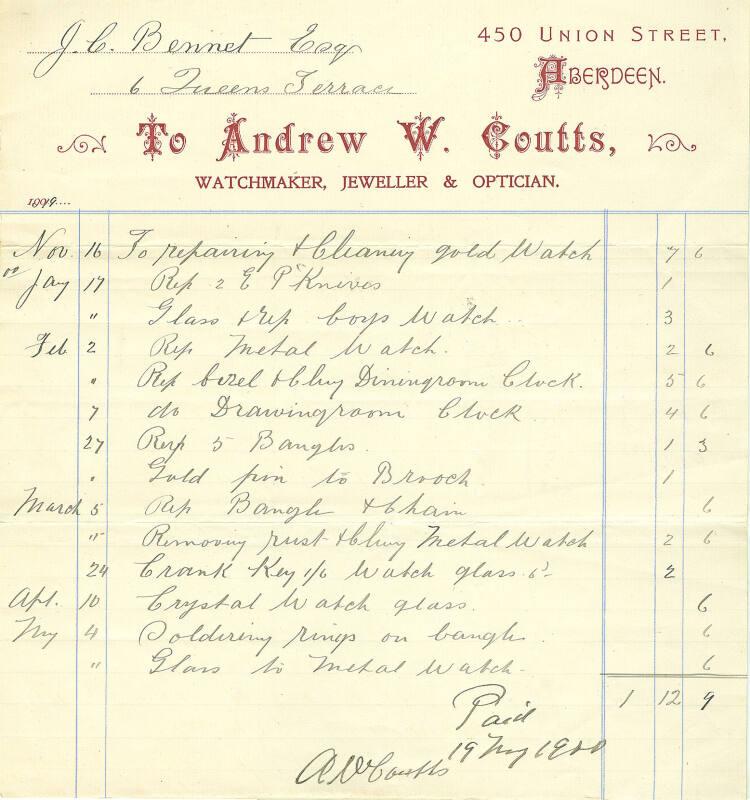 J. C. Bennet Esq
450 UNION STREET,
6 Queens Terrace
ABERDEEN.
To Andrew W. Coutts,
WATCHMAKER, JEWELLER & OPTICIAN.
Nov. 16 To repairing & Cleaning gold Watch 7 6
00 Jany 17 Rep 2 E P Knives 1
" Glass & rep boys Watch 3
Feb 2 Rep Metal Watch. 2 6
" Rep bezel & Cling Diningroom Clock. 5 6
7 do Drawingroom Clock 4 6
27 Rep 5 Bangles. 1 3
" Gold pin to Brooch. 1
March 5 Rep Bangle & Chain 6
" Removing rust & Cling Metal Watch 2 6
24 Crank Key 1/6 Watch glass 6d 2
Apl. 10 Crystal Watch glass. 6
My 4 Soldering rings on bangle. 6
" Glass to Metal Watch 6
1 12 9
Paid
19 My 1900
AWCoutts